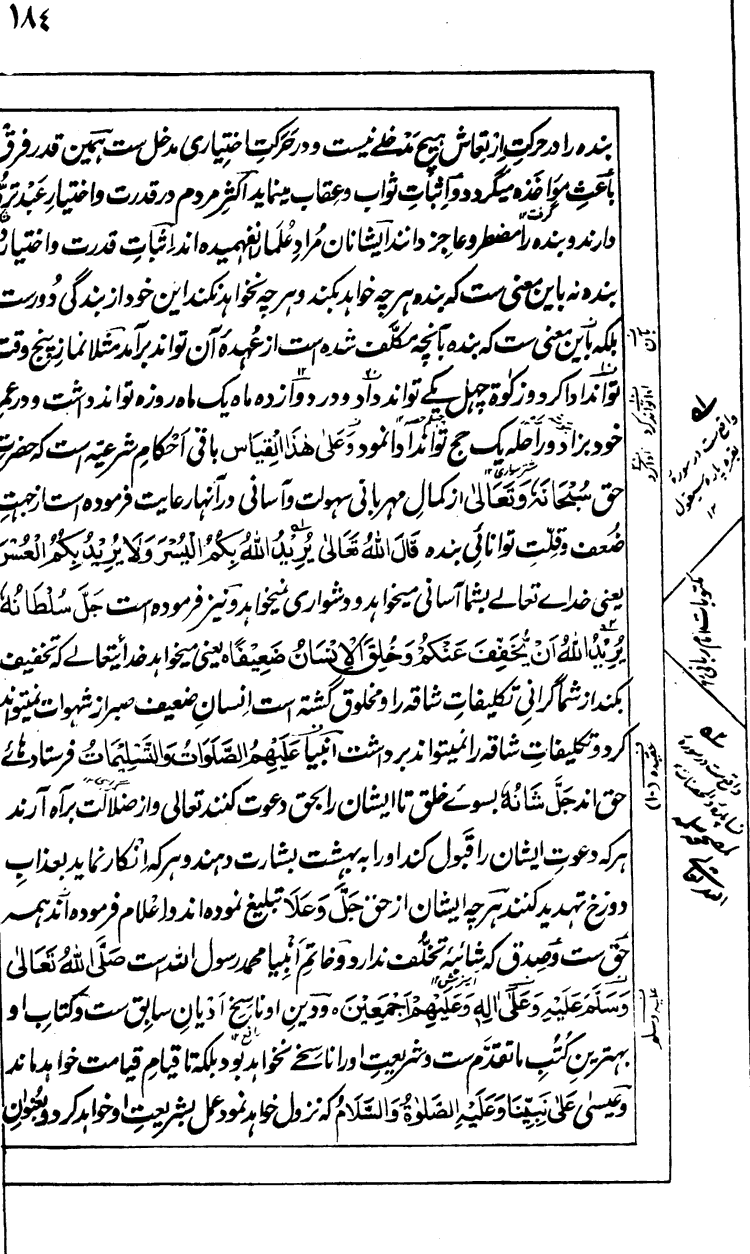 ١٨٤
بنده را در حرکتِ ارتعاش هیچ مدخلے نیست و در حرکتِ اختیاری مدخل ست همین قدر فرق
باعثِ مؤاخذه میگردد و اثباتِ ثواب و عقاب مینماید اکثرِ مردم در قدرت و اختیارِ عبد تردد
دارند و بنده را مضطر و عاجز دانند ایشانان مرادِ علما را نفهمیده اند اثباتِ قدرت و اختیار در
بنده نه باین معنی ست که بنده هر چه خواهد بکند و هر چه نخواهد نکند این خود از بندگی دورست
بلکه باین معنی ست که بنده بآنچه مکلّف شده است از عهدهٔ آن تواند برآمد مثلا نمازِ پنج وقت
تواند ادا کرد و زکوٰة چهل یکے تواند داد و در دوازده ماه یک ماه روزه تواند داشت و در عمر
خود بزاد و راحله یک حج تواند ادا نمود وَعَلیٰ هٰذَا الْقِیَاس باقی احکامِ شرعیّه است که حضرت
حق سُبْحَانَهٗ وَتَعَالیٰ از کمالِ مهربانی سهولت و آسانی در آنها رعایت فرموده است از جهتِ
ضُعف و قلّتِ توانائی بنده قَالَ اللهُ تَعَالیٰ یُرِیْدُ اللهُ بِکُمُ الْیُسْرَ وَلَا یُرِیْدُ بِکُمُ الْعُسْرَ
یعنی خداے تعالےٰ بشما آسانی میخواهد و دشواری نمیخواهد و نیز فرموده است جَلَّ سُلْطَانُهٗ
یُرِیْدُ اللهُ اَنْ یُّخَفِّفَ عَنْکُمْ وَخُلِقَ الْاِنْسَانُ ضَعِیْفًا یعنی میخواهد خداے تعالےٰ که تخفیف
بکند از شما گرانیِ تکلیفاتِ شاقه را و مخلوق گشته است انسانِ ضعیف صبر از شهوات نمیتواند
کرد و تکلیفاتِ شاقه را نمیتواند برداشت انبیا عَلَیْهِمُ الصَّلَوَاتُ وَالتَّسْلِیْمَاتُ فرستادهائے
حق اند جَلَّ شَانُهٗ بسوے خلق تا ایشان را بحق دعوت کنند تعالیٰ و از ضلالت براه آرند
هر که دعوتِ ایشان را قبول کند او را به بهشت بشارت دهند و هر که انکار نماید بعذابِ
دوزخ تهدید کنند هر چه ایشان از حق جَلَّ وَعَلَا تبلیغ نموده اند و اعلام فرموده اند همه
حق ست و صدق که شائبهٔ تخلّف ندارد و خاتمِ انبیا محمد رسول الله است صَلَّی اللهُ تَعَالیٰ
وَسَلَّمَ عَلَیْهِ وَعَلیٰ اٰلِهٖ وَعَلَیْهِمْ اَجْمَعِیْنَ و دینِ او ناسخِ ادیانِ سابق ست و کتابِ او
بهترین کُتبِ ما تقدّم ست و شریعتِ او را ناسخے نخواهد بود بلکه تا قیامِ قیامت خواهد ماند
و عیسیٰ عَلیٰ نَبِیِّنَا وَعَلَیْهِ الصَّلٰوةُ وَالسَّلَامُ که نزول خواهد نمود عمل بشریعتِ او خواهد کرد و بعنوانِ
بآن
ادا تواند کرد
ادا کرد
عقیده (١٠)
علیه و سلم
واقع ست در سورهٔ
بقره پاره سیقول
١٢
مکتوبات امام ربانی
واقع ست در سورهٔ